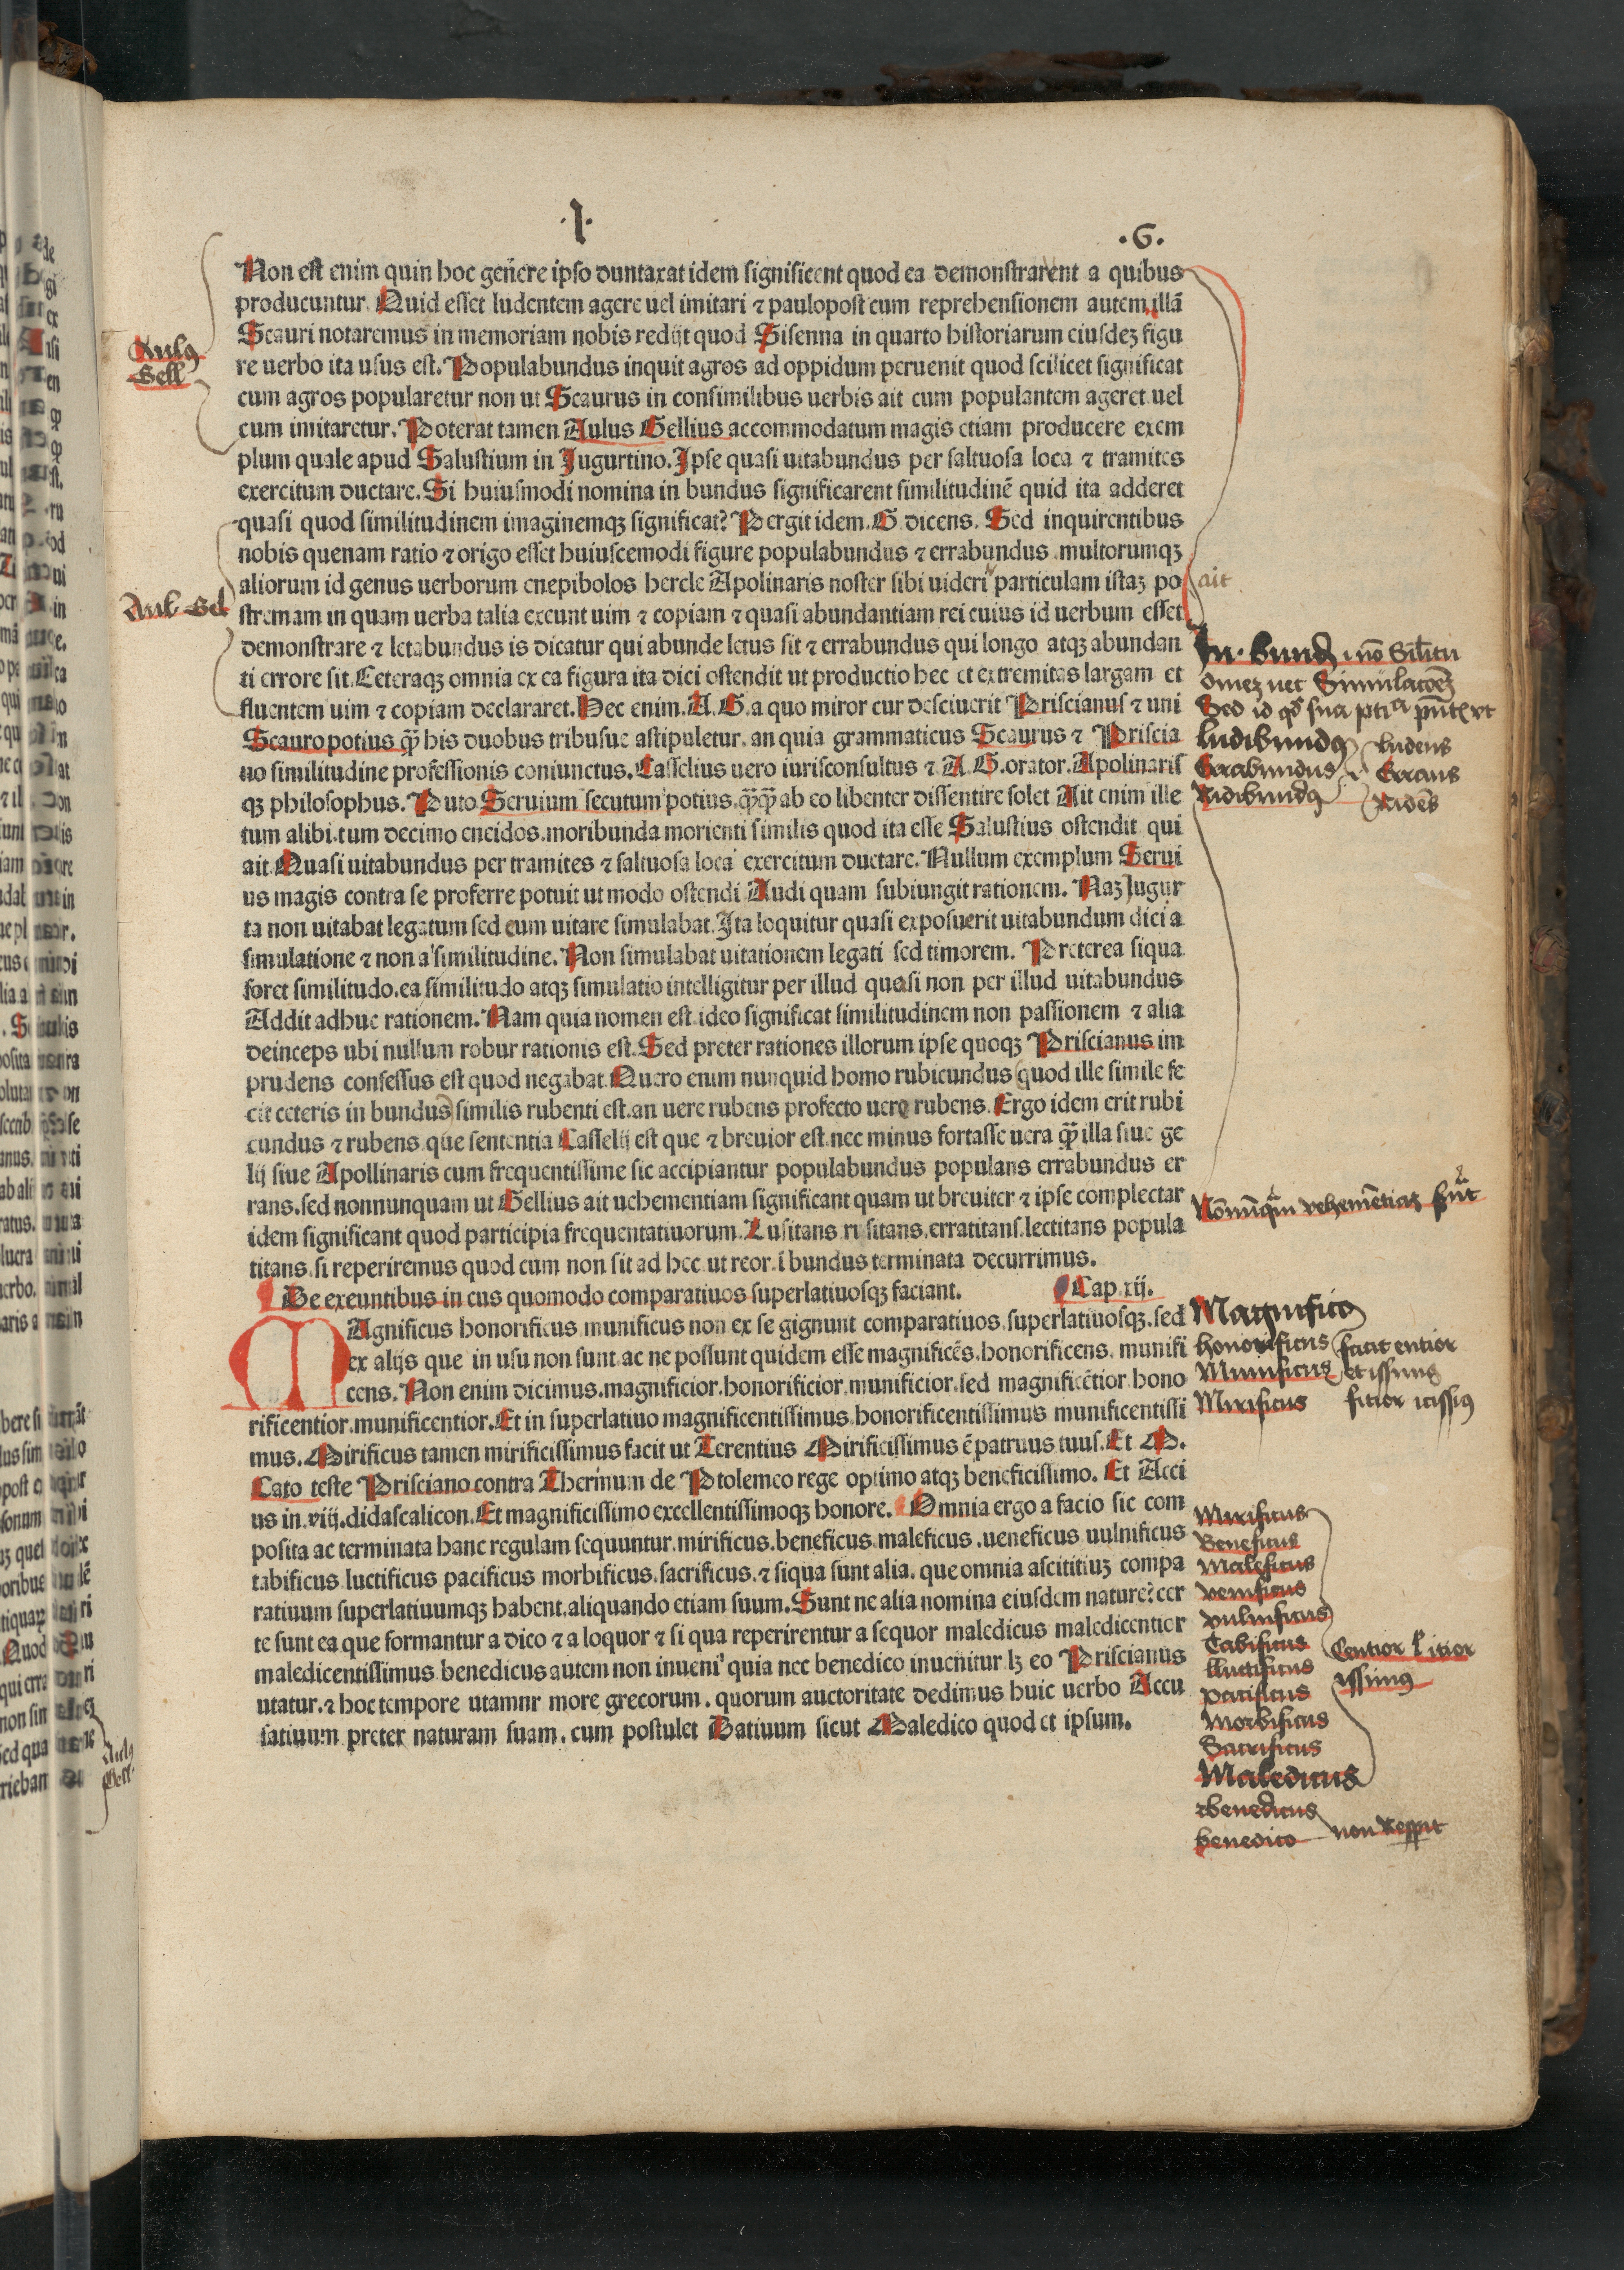 .I. .G.
Non est enim quin hoc genere ipso duntaxat idem significent quod ea demonstrarent a quibus
producuntur. Quid esset ludentem agere uel imitari ⁊ paulopost cum reprehensionem autem illā
Scauri notaremus in memoriam nobis redijt quod Sisenna in quarto historiarum eiusdeꝫ figu
re uerbo ita usus est. Populabundus inquit agros ad oppidum peruenit quod scilicet significat
cum agros popularetur non ut Scaurus in consimilibus uerbis ait cum populantem ageret uel
cum imitaretur. Poterat tamen Aulus Gellius accommodatum magis etiam producere exem
plum quale apud Salustium in Jugurtino. Ipse quasi uitabundus per saltuosa loca ⁊ tramites
exercitum ductare. Si huiusmodi nomina in bundus significarent similitudinē quid ita adderet
quasi quod similitudinem imaginemqꝫ significat? Pergit idem. G. dicens. Sed inquirentibus
nobis quenam ratio ⁊ origo esset huiuscemodi figure populabundus ⁊ errabundus multorumqꝫ
aliorum id genus uerborum cnepibolos hercle Apolinaris noster sibi uideri particulam istaꝫ po
stremam in quam uerba talia exeunt uim ⁊ copiam ⁊ quasi abundantiam rei cuius id uerbum esset
demonstrare ⁊ letabundus is dicatur qui abunde letus sit ⁊ errabundus qui longo atqꝫ abundan
ti errore sit. Ceteraqꝫ omnia ex ea figura ita dici ostendit ut productio hec et extremitas largam et
fluentem uim ⁊ copiam declararet. Hec enim. A. G. a quo miror cur desciuerit Priscianus ⁊ uni
Scauro potius q̄ꝫ his duobus tribusue astipuletur. an quia grammaticus Scaurus ⁊ Priscia
no similitudine professionis coniunctus. Casselius uero iurisconsultus ⁊ A. G. orator. Apolinaris
qꝫ philosophus. Puto Seruium secutum potius. q̄ꝫq̄ꝫ ab eo libenter dissentire solet Ait enim ille
tum alibi. tum decimo eneidos. moribunda morienti similis quod ita esse Salustius ostendit qui
ait. Quasi uitabundus per tramites ⁊ saltuosa loca exercitum ductare. Nullum exemplum Serui
us magis contra se proferre potuit ut modo ostendi Audi quam subiungit rationem. Naꝫ Jugur
ta non uitabat legatum sed eum uitare simulabat. Ita loquitur quasi exposuerit uitabundum dici a
simulatione ⁊ non a similitudine. Non simulabat uitationem legati sed timorem. Preterea siqua
foret similitudo. ea similitudo atqꝫ simulatio intelligitur per illud quasi non per illud uitabundus
Addit adhuc rationem. Nam quia nomen est ideo significat similitudinem non passionem ⁊ alia
deinceps ubi nullum robur rationis est. Sed preter rationes illorum ipse quoqꝫ Priscianus im
prudens confessus est quod negabat. Quero enim nunquid homo rubicundus quod ille simile fe
cit ceteris in bundus similis rubenti est. an uere rubens profecto uere rubens. Ergo idem erit rubi
cundus ⁊ rubens que sententia Casselij est que ⁊ breuior est. nec minus fortasse uera q̄ꝫ illa siue ge
lij siue Apollinaris cum frequentissime sic accipiantur populabundus populans errabundus er
rans. sed nonnunquam ut Gellius ait uehementiam significant quam ut breuiter ⁊ ipse complectar
idem significant quod participia frequentatiuorum. Lusitans risitans. erratitans. lectitans popula
titans. si reperiremus quod cum non sit ad hec. ut reor. ī bundus terminata decurrimus.
De exeuntibus in cus quomodo comparatiuos superlatiuosqꝫ faciant. Cap. xij.
MAgnificus honorificus munificus non ex se gignunt comparatiuos superlatiuosqꝫ. sed
ex alijs que in usu non sunt. ac ne possunt quidem esse magnificēs. honorificens. munifi
cens. Non enim dicimus. magnificior. honorificior. munificior. sed magnificētior. hono
rificentior. munificentior. Et in superlatiuo magnificentissimus. honorificentissimus munificentissi
mus. Mirificus tamen mirificissimus facit ut Terentius Mirificissimus ē patruus tuus. Et M.
Cato teste Prisciano contra Thermum de Ptolemeo rege optimo atqꝫ beneficissimo. Et Acci
us in. viij. didascalicon. Et magnificissimo excellentissimoqꝫ honore. Omnia ergo a facio sic com
posita ac terminata hanc regulam sequuntur. mirificus. beneficus maleficus. ueneficus uulnificus
tabificus luctificus pacificus morbificus. sacrificus. ⁊ siqua sunt alia. que omnia ascititiuꝫ compa
ratiuum superlatiuumqꝫ habent. aliquando etiam suum. Sunt ne alia nomina eiusdem nature? cer
te sunt ea que formantur a dico ⁊ a loquor ⁊ si qua reperirentur a sequor maledicus maledicentior
maledicentissimus. benedicus autem non inueni quia nec benedico inuenitur lꝫ eo Priscianus
utatur. ⁊ hoc tempore utamnr more grecorum. quorum auctoritate dedimus huic uerbo Accu
satiuum preter naturam suam. cum postulet Datiuum sicut Maledico quod et ipsum.
Aulꝰ
Gell
Aul Gel
ait
ludibundꝰ ludens
Errabundus Errans
Ridibundꝰ Ridēs
Magnificꝰ
honorificus facit entior
Munificus et issimus
Mirificus
Mirificus
Beneficus
Maleficus
venificus
vulnificus
Tabificus
lluctificus
pacificus
Morbificus
Sacrificus
Centior
issimꝰ
Maledicus
benedicus
benedico non